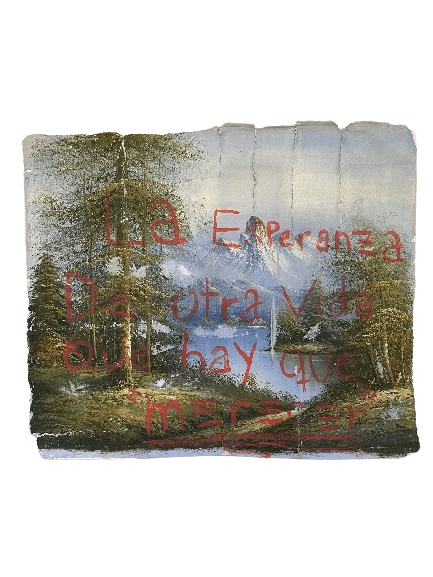 La Esperanza
De otra Vida
que hay que
"merecer"